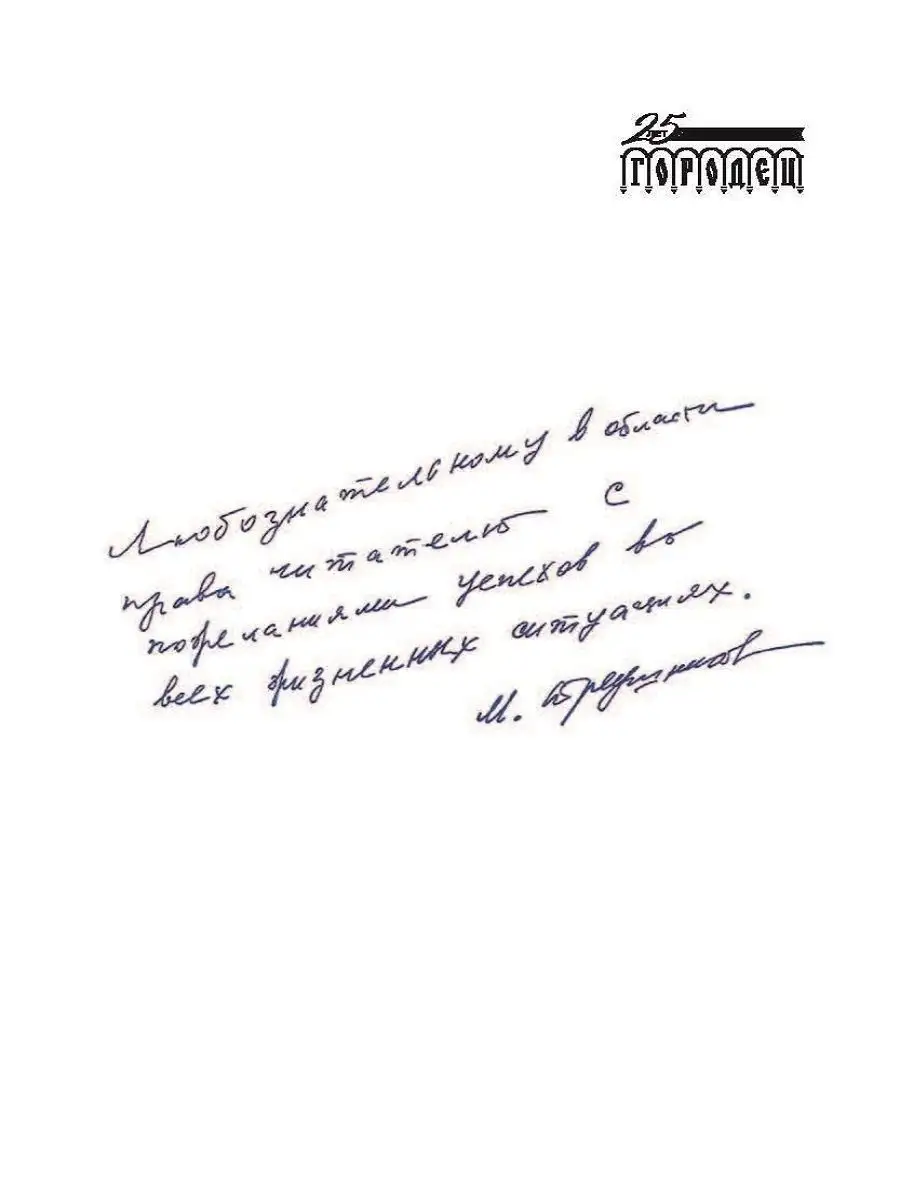 25
ЛЕТ
ГОРОДЕЦ
Любознательному в области
права читателю с
пожеланиями успехов во
всех жизненных ситуациях.
М. Треушников